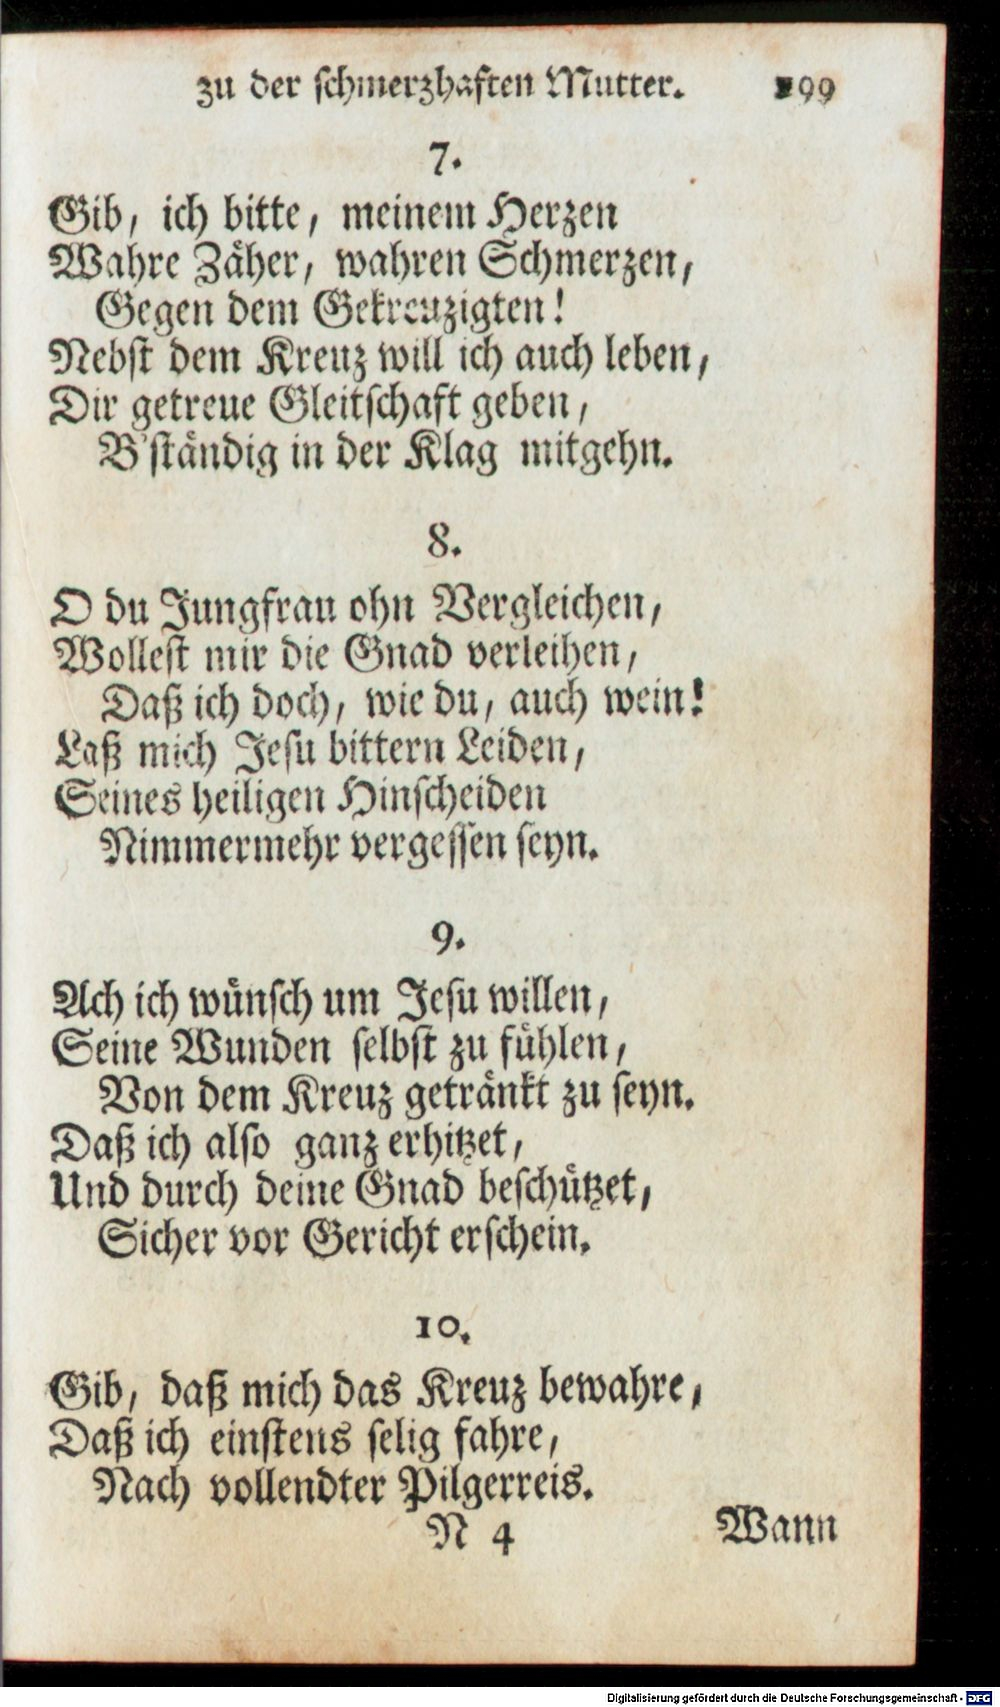 zu der schmerzhaften Mutter. 199
7.
Gib, ich bitte, meinem Herzen
Wahre Zäher, wahren Schmerzen,
Gegen dem Gekreuzigten!
Nebst dem Kreuz will ich auch leben,
Dir getreue Gleitschaft geben,
B'ständig in der Klag mitgehn.
8.
O du Jungfrau ohn Vergleichen,
Wollest mir die Gnad verleihen,
Daß ich doch, wie du, auch wein!
Laß mich Jesu bittern Leiden,
Seines heiligen Hinscheiden
Nimmermehr vergessen seyn.
9.
Ach ich wünsch um Jesu willen,
Seine Wunden selbst zu fühlen,
Von dem Kreuz getränkt zu seyn.
Daß ich also ganz erhitzet,
Und durch deine Gnad beschützet,
Sicher vor Gericht erschein.
10.
Gib, daß mich das Kreuz bewahre,
Daß ich einstens selig fahre,
Nach vollendter Pilgerreis.
N 4 Wann
Digitalisierung gefördert durch die Deutsche Forschungsgemeinschaft - DFG